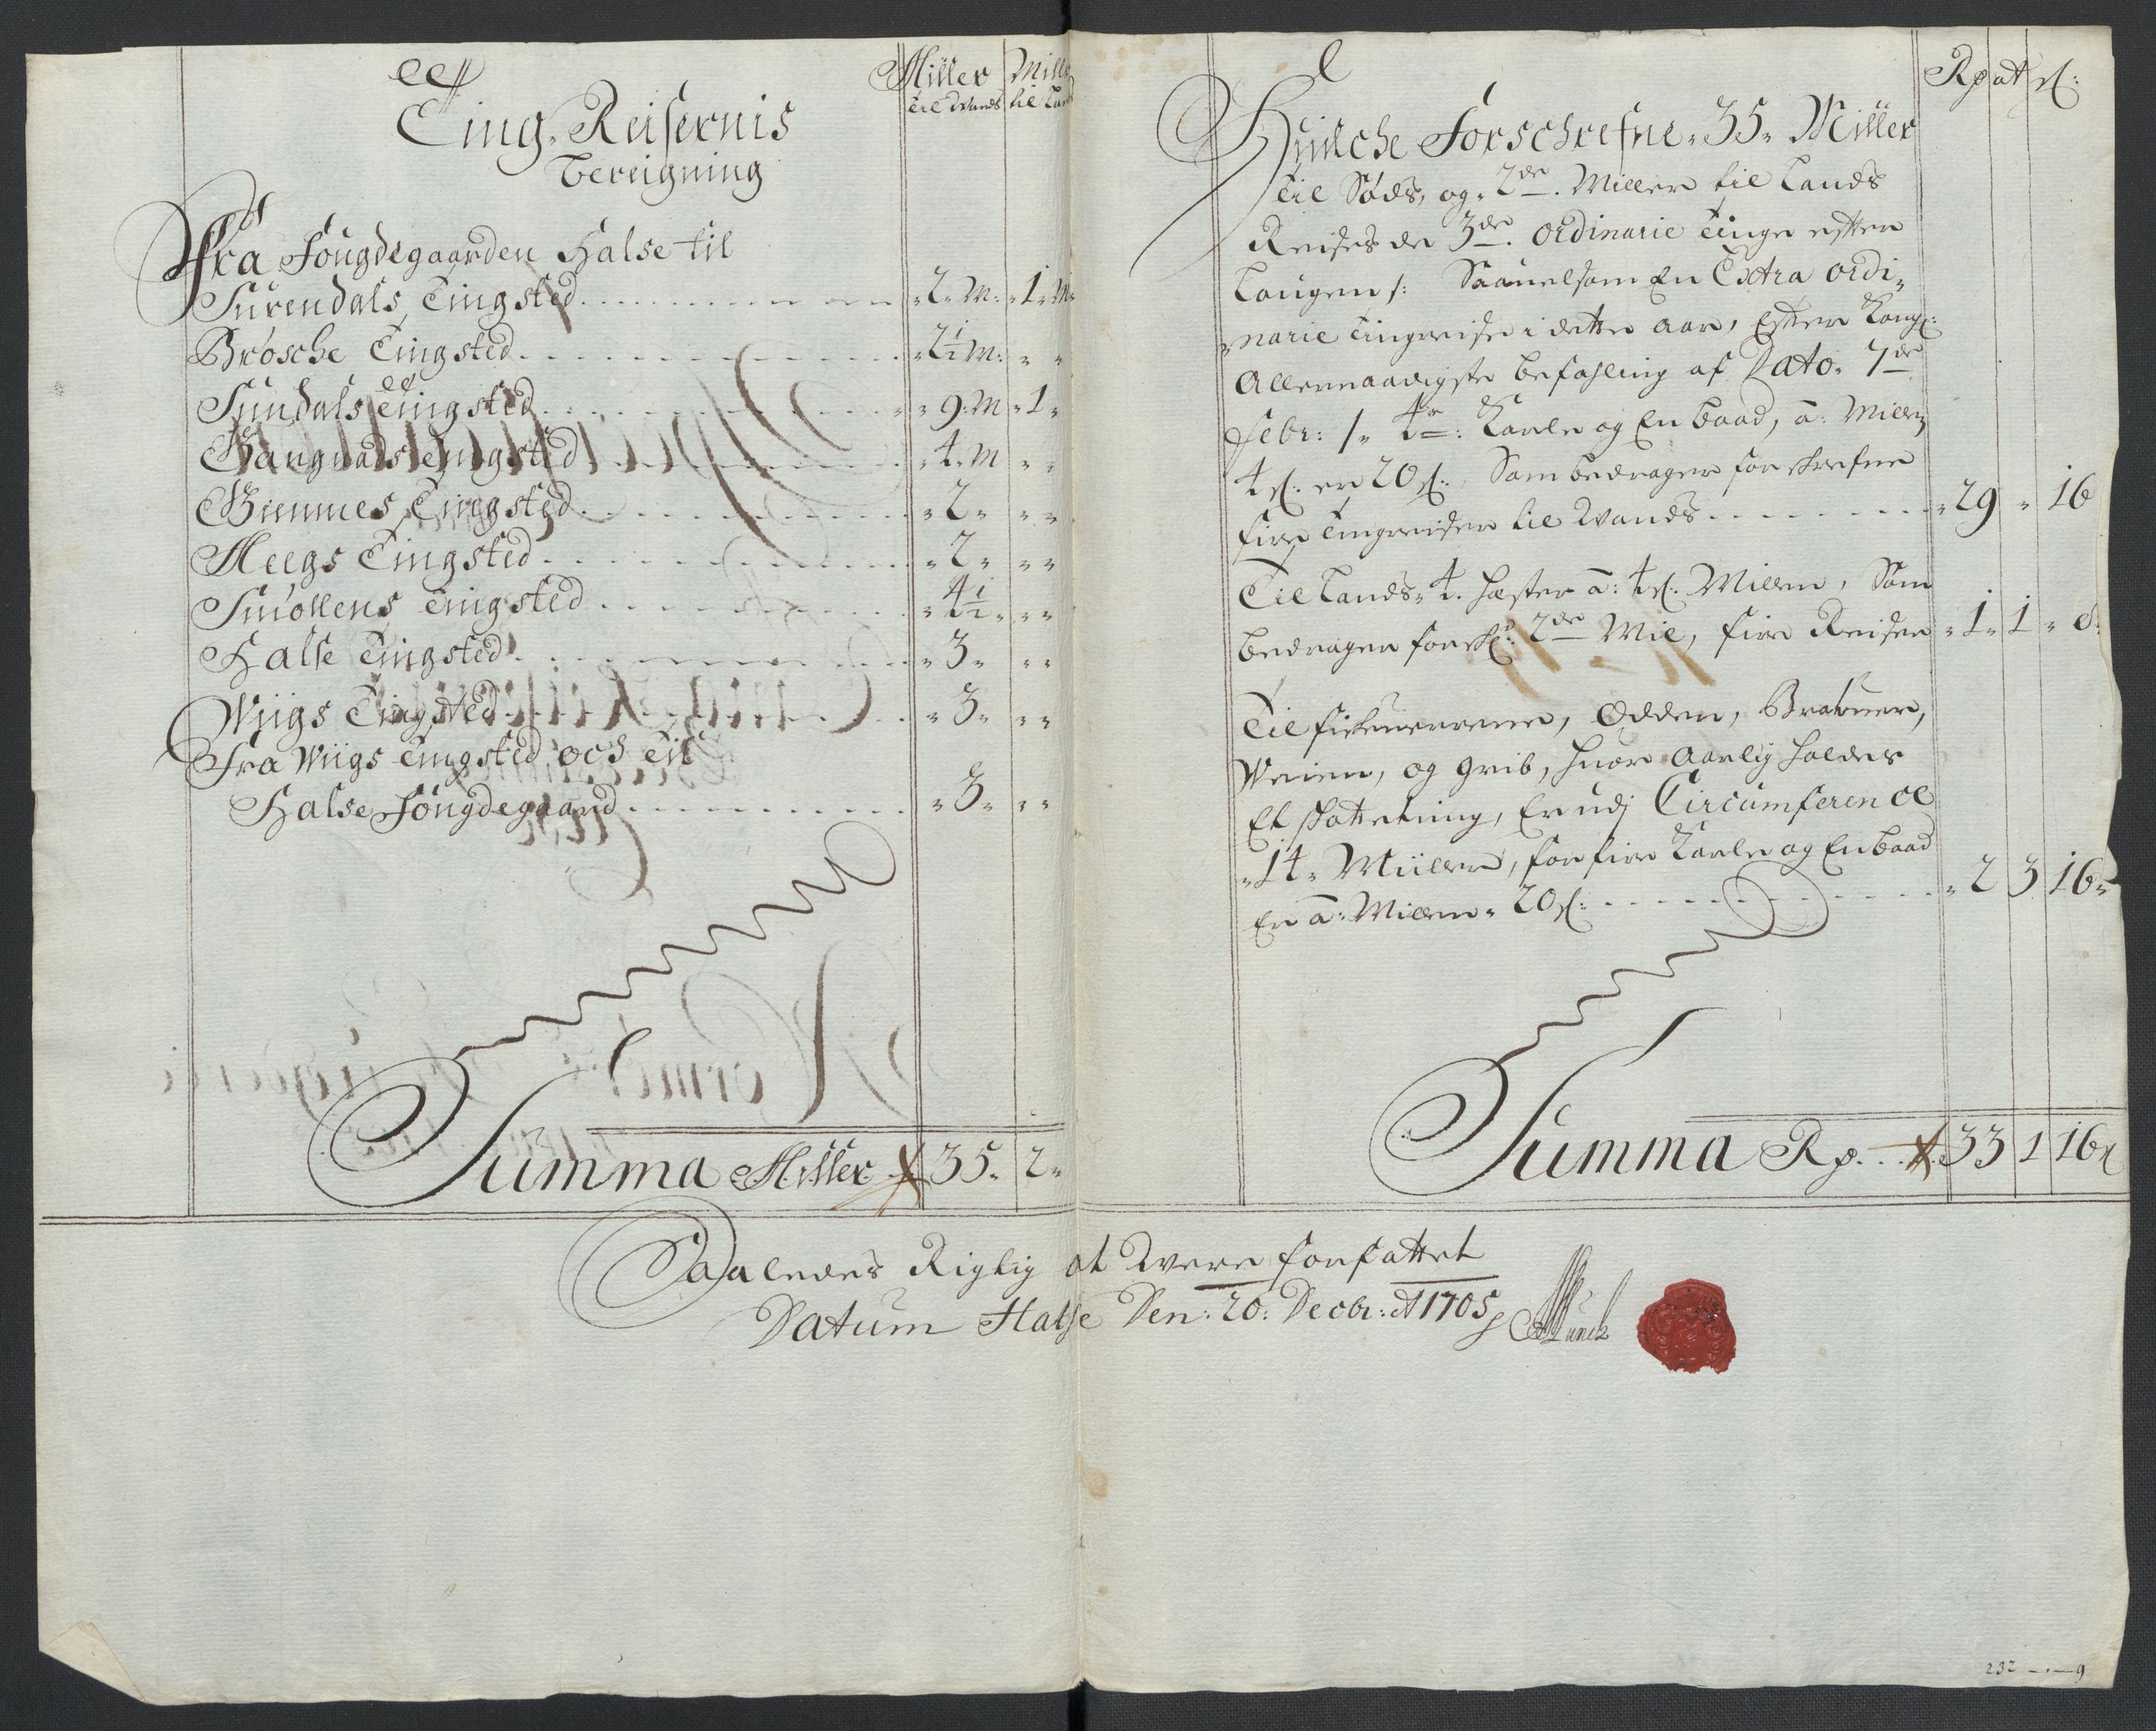 Miller Mill
til Wands til Land
Ting, Reisernis
Bereigning
Fra Fougdegaarden Halse til
Surendals, Tingsted 2. M: 1. M
Brøsche Tingsted 2½ M:
Sundals Tingsted 9. M 1
Stangvads Tingsted 4. M
Giemnes Tingsted 2
Meegs Tingsted 2
Smøllens Tingsted 4½
Halse Tingsted 3
Wiigs Tingsted 3
Fra Wiigs Tingsted och til
Halse Fougdegaard 3
Summa Miller 35. 2
Rp at s:
Huilche Forschrefne 35 Miller
til Søds, og 2de. Miller til Lands
Reises de 3de. ordinarie Tinge efter
Lougen /: Saauelsom En Extra ordi-
narie Tingreise i dette aar, Efter Kongl:
Allernaadigste befahling af Dato 7de
Febr: /. 4re: Karle og En baad, a: Millen
4 s. er 20 s: Som bedrager forskrefne
fire Tingreiser til Wands 29 16
Til Lands 4. hester a: 4 s. Millen, Som
bedrager forskr: 2de Mil, fire Reiser 1 1 8
Til fischeuerene, Odden, Bratuer,
Weien, og Grib, huor Aarlig holdes
Et skatteting, Er udj Circumference
14 Miiler, for fire Karle og En baad
Er a: Millen 20 s: 2 3 16
Summa Rp. 33 1 16
Saaledes Rigtig at were forfattet
Datum Halse Den: 20: Decbr: Ao 1705
Munch
232 -.- 9